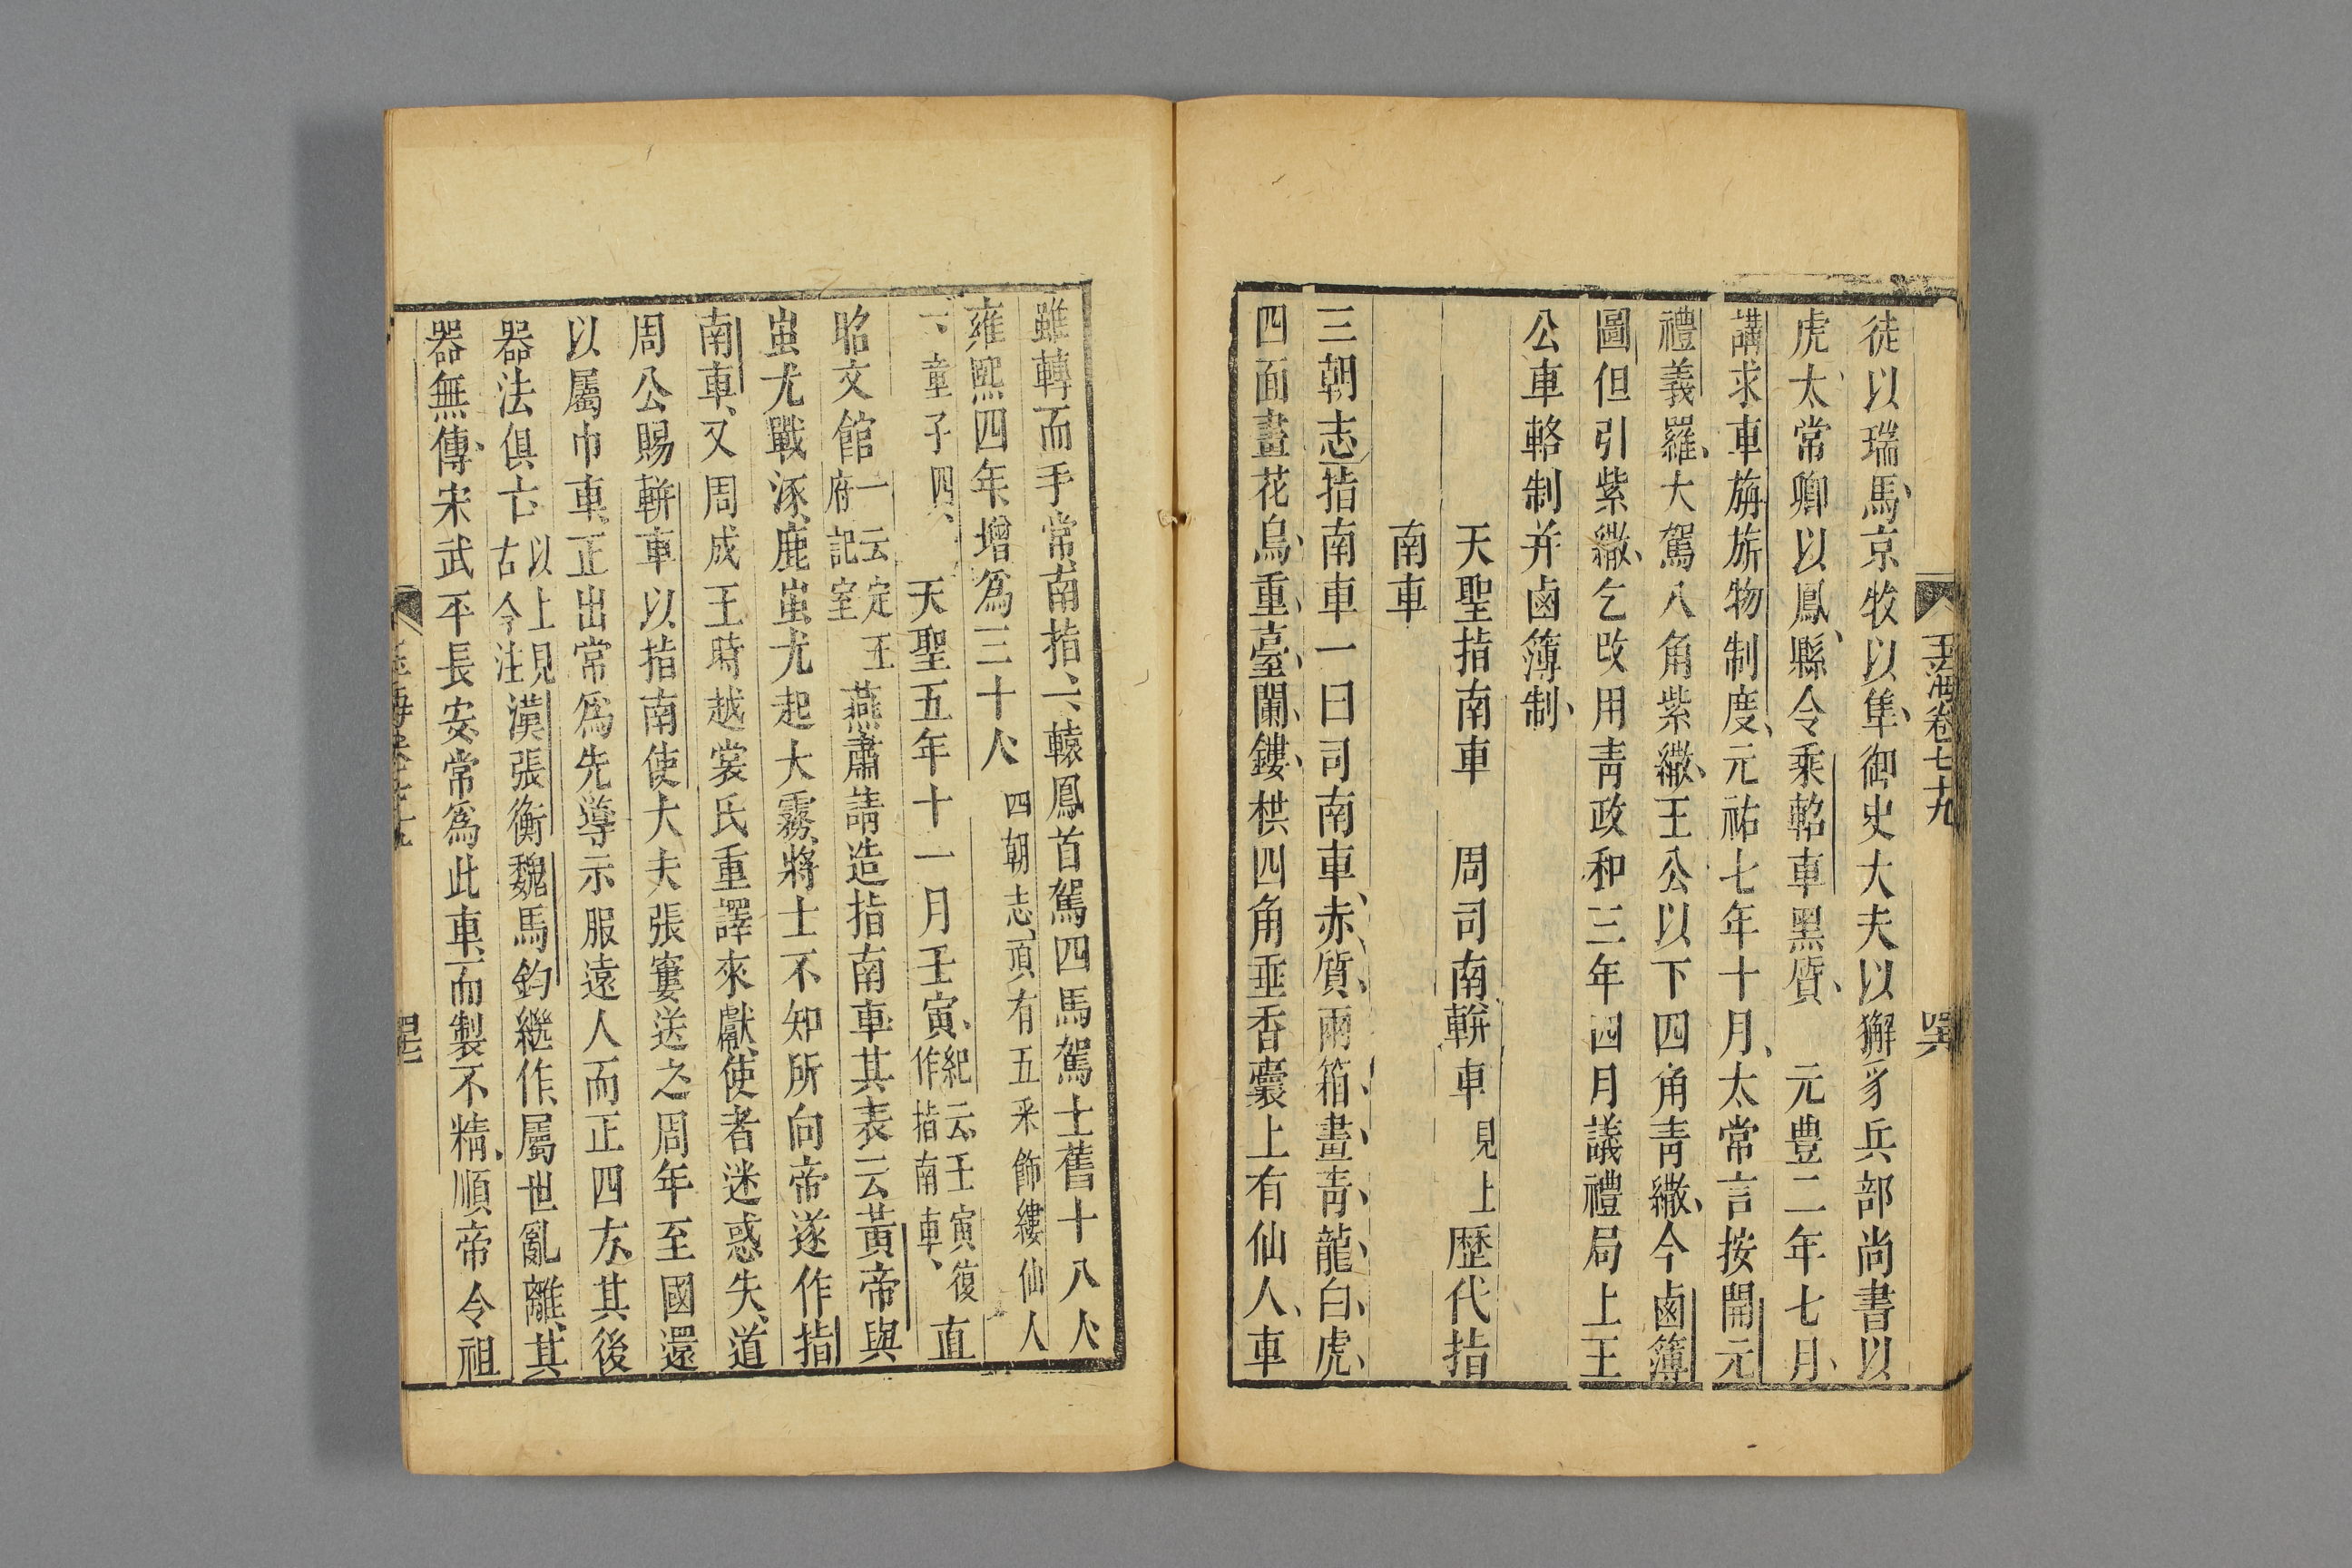 玉海卷七十九
徒以瑞馬京牧以隼御史大夫以獬豸兵部尚書以
虎太常卿以鳳縣令乘軺車黑質 元豊二年七月
講求車旂旂物制度元祐七年十月太常言按開元
禮義羅大駕八角紫繖王公以下四角青繖今鹵簿
圖但引紫繖乞改用青政和三年四月議禮局上王
公車輅制并鹵簿制
天聖指南車 周司南軿車見上歷代指
南車
三朝志指南車一曰司南車赤質兩箱畫青龍白虎
四面畫花鳥重臺闌鏤栱四角垂香囊上有仙人車
雖轉而手常南指一轅鳳首駕四馬駕士舊十八人
雍熙四年增爲三十人四朝志頂有五采飾縷仙人
一童子四 天聖五年十一月壬寅紀云壬寅復作指南車直
昭文館一云定王府記室燕肅請造指南車其表云黃帝與
蚩尤戰涿鹿蚩尤起大霧將士不知所向帝遂作指
南車又周成王時越裳氏重譯來獻使者迷惑失道
周公賜軿車以指南使大夫張寠送之周年至國還
以屬巾車正出常爲先導示服遠人而正四方其後
器法俱亡以上見古今注漢張衡魏馬鈞繼作屬世亂離其
器無傳宋武平長安常爲此車而製不精順帝令祖